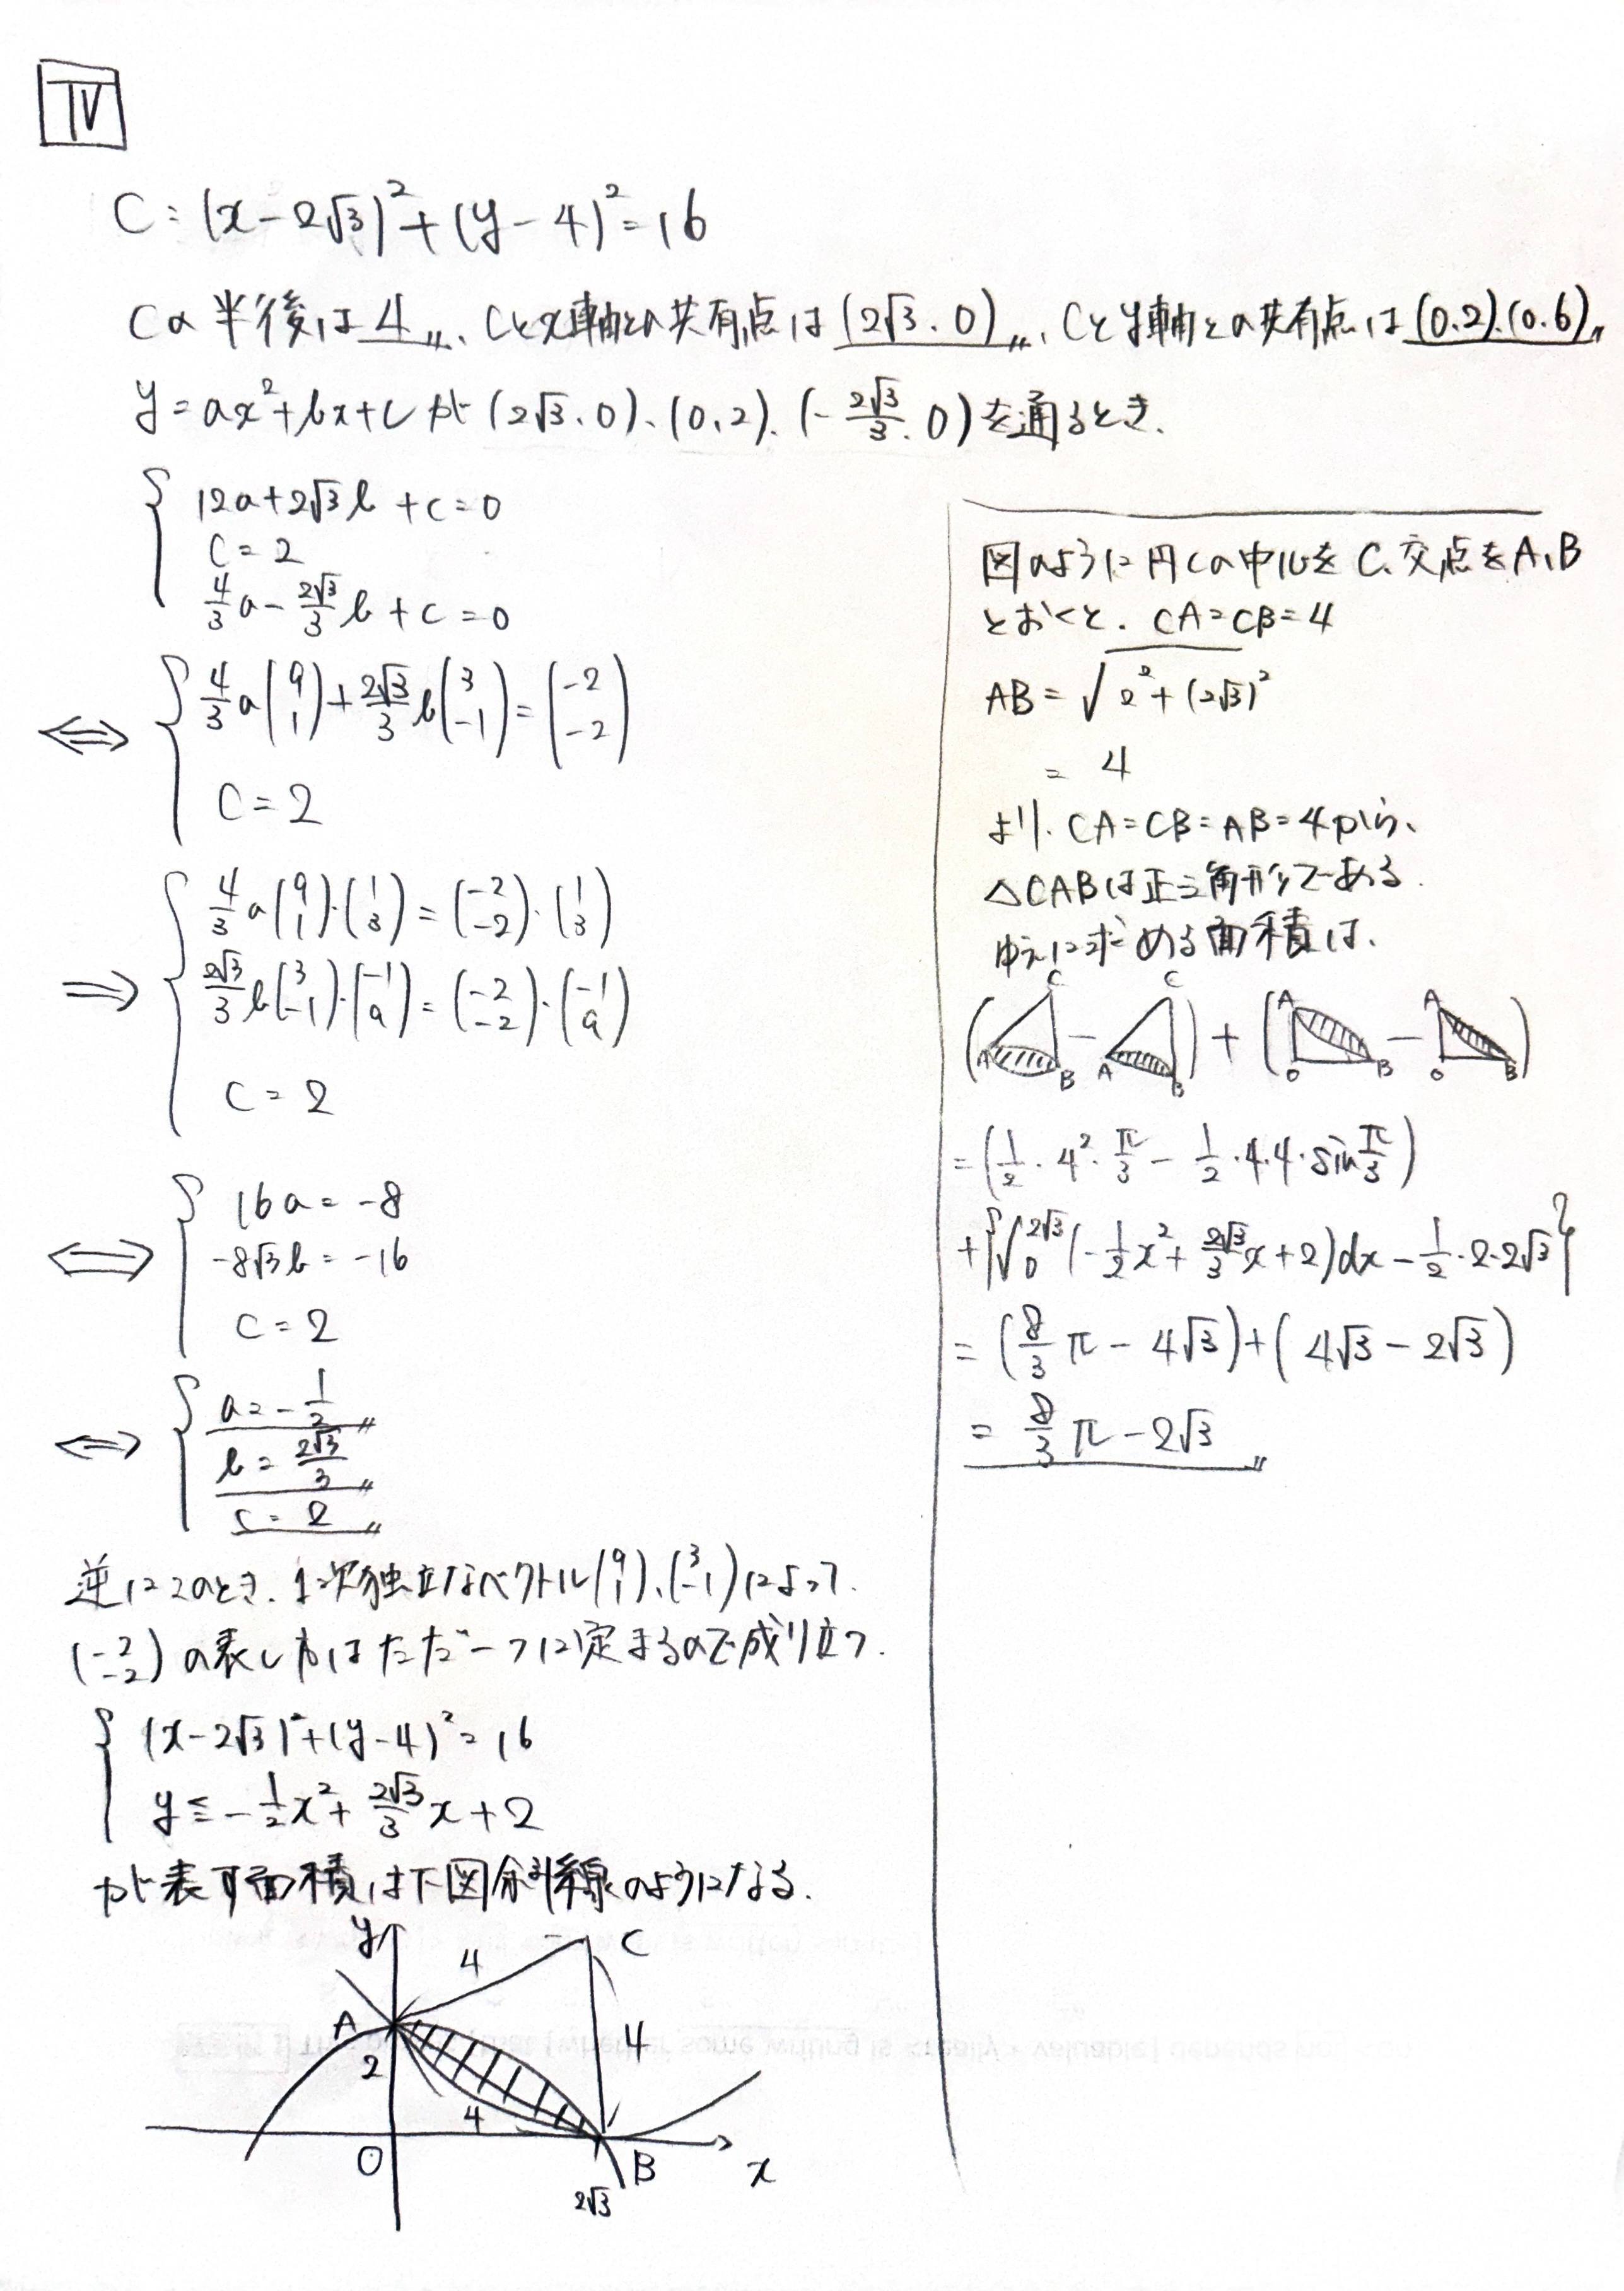 IV
C: (x-2√3)²+(y-4)²=16
Cの半径は4〃、Cとx軸との共有点は(2√3.0)〃、Cとy軸との共有点は(0.2).(0.6)〃
y=ax²+bx+cが(2√3.0)、(0.2).(-2√3/3.0)を通るとき.
{12a+2√3b+c=0
C=2
4/3a-2√3/3b+c=0
⇔ {4/3a(9 1)+2√3/3b(3 -1)=(-2 -2)
C=2
⇒ {4/3a(9 1)・(1 3)=(-2 -2)・(1 3)
2√3/3b(3 -1)・(-1 9)=(-2 -2)・(-1 9)
C=2
⇔ {16a=-8
-8√3b=-16
C=2
⇔ {a=-1/2〃
b=2√3/3〃
c=2〃
逆にこのとき.1次独立なベクトル(9 1)、(3 -1)によって.
(-2 -2)の表し方はただ一つに定まるので成り立つ.
{(x-2√3)²+(y-4)²=16
y≦-1/2x²+2√3/3x+2
が表す面積は下図斜線のようになる.
y
4
C
A
2
4
4
O
B
x
2√3
図のように円Cの中心をC、交点をA、B
とおくと. CA=CB=4
AB=√2²+(2√3)²
=4
より. CA=CB=AB=4から、
△CABは正三角形である.
ゆえに求める面積は、
(C A B - C A B)+(A O B - A O B)
=(1/2・4²・π/3-1/2・4・4・sinπ/3)
+{∫0 2√3(-1/2x²+2√3/3x+2)dx-1/2・2・2√3}
=(8/3π-4√3)+(4√3-2√3)
=8/3π-2√3〃